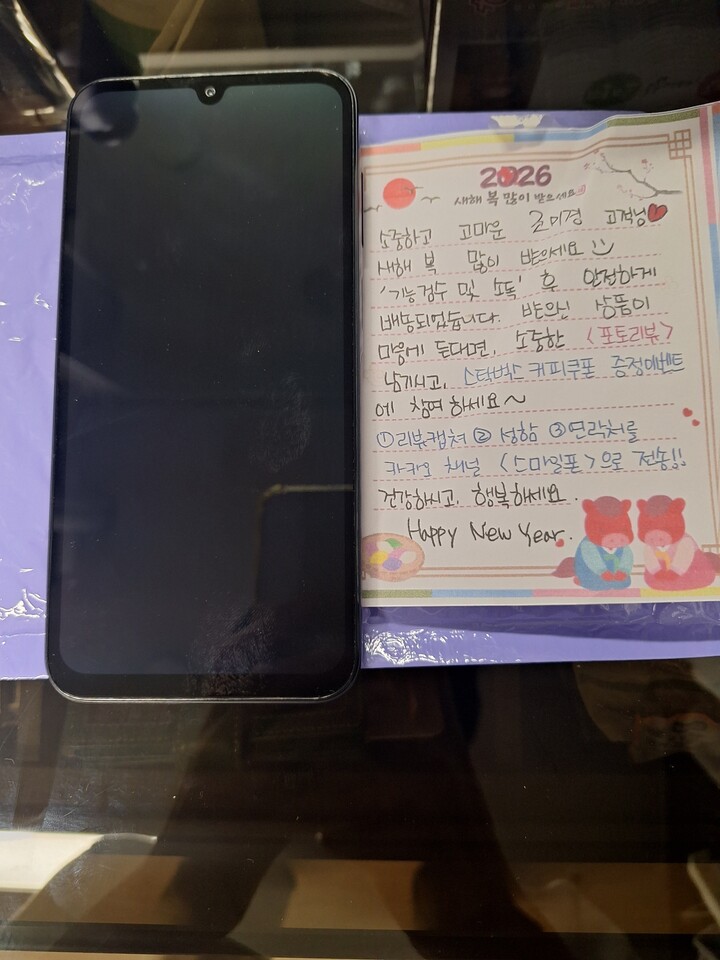 2026
새해 복 많이 받으세요
소중하고 고마운 고객님
새해 복 많이 받으세요
'기능검수 및 소독' 후 안전하게
배송되었습니다. 받으신 상품이
마음에 드신다면, 소중한 <포토리뷰>
남기시고, 스타벅스 커피쿠폰 증정이벤트
에 참여하세요~
①리뷰캡쳐 ② 성함 ③연락처를
카카오 채널 <스마일폰>으로 전송!!
건강하시고, 행복하세요.
Happy New Year.